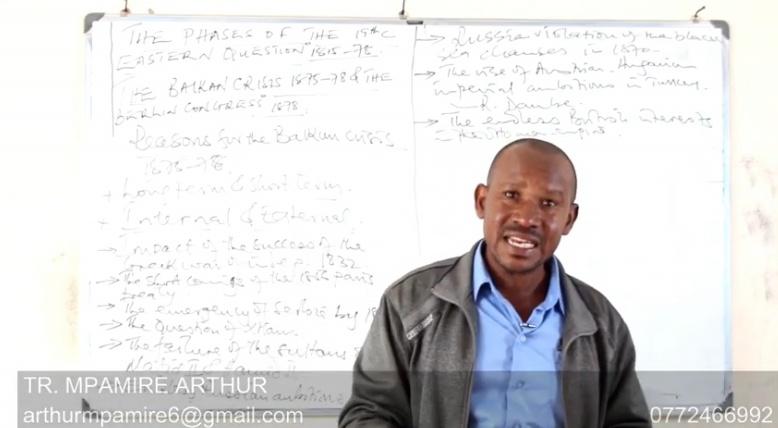 THE PHASES OF THE 19thC
EASTERN QUESTION 1815-78.
THE BALKAN CRISIS 1875-78 & THE
BERLIN CONGRESS 1878.
Reasons for the Balkan crisis
1875-78.
+ Long term & Short Term.
+ Internal & External.
→ Impact of the success of the
Greek war of indep. 1832
→ The short comings of the 1856 Paris
treaty
→ The emergency of Serbia by
→ The question of
→ The failure of the Sultans
Russian ambitions
→ Russia violation of the black
sea clauses in 1870
→ The rise of Austrian-Hungarian
imperial ambitions in Turkey.
→ The endless British interests
TR. MPAMIRE ARTHUR
arthurmpamire6@gmail.com
0772466992